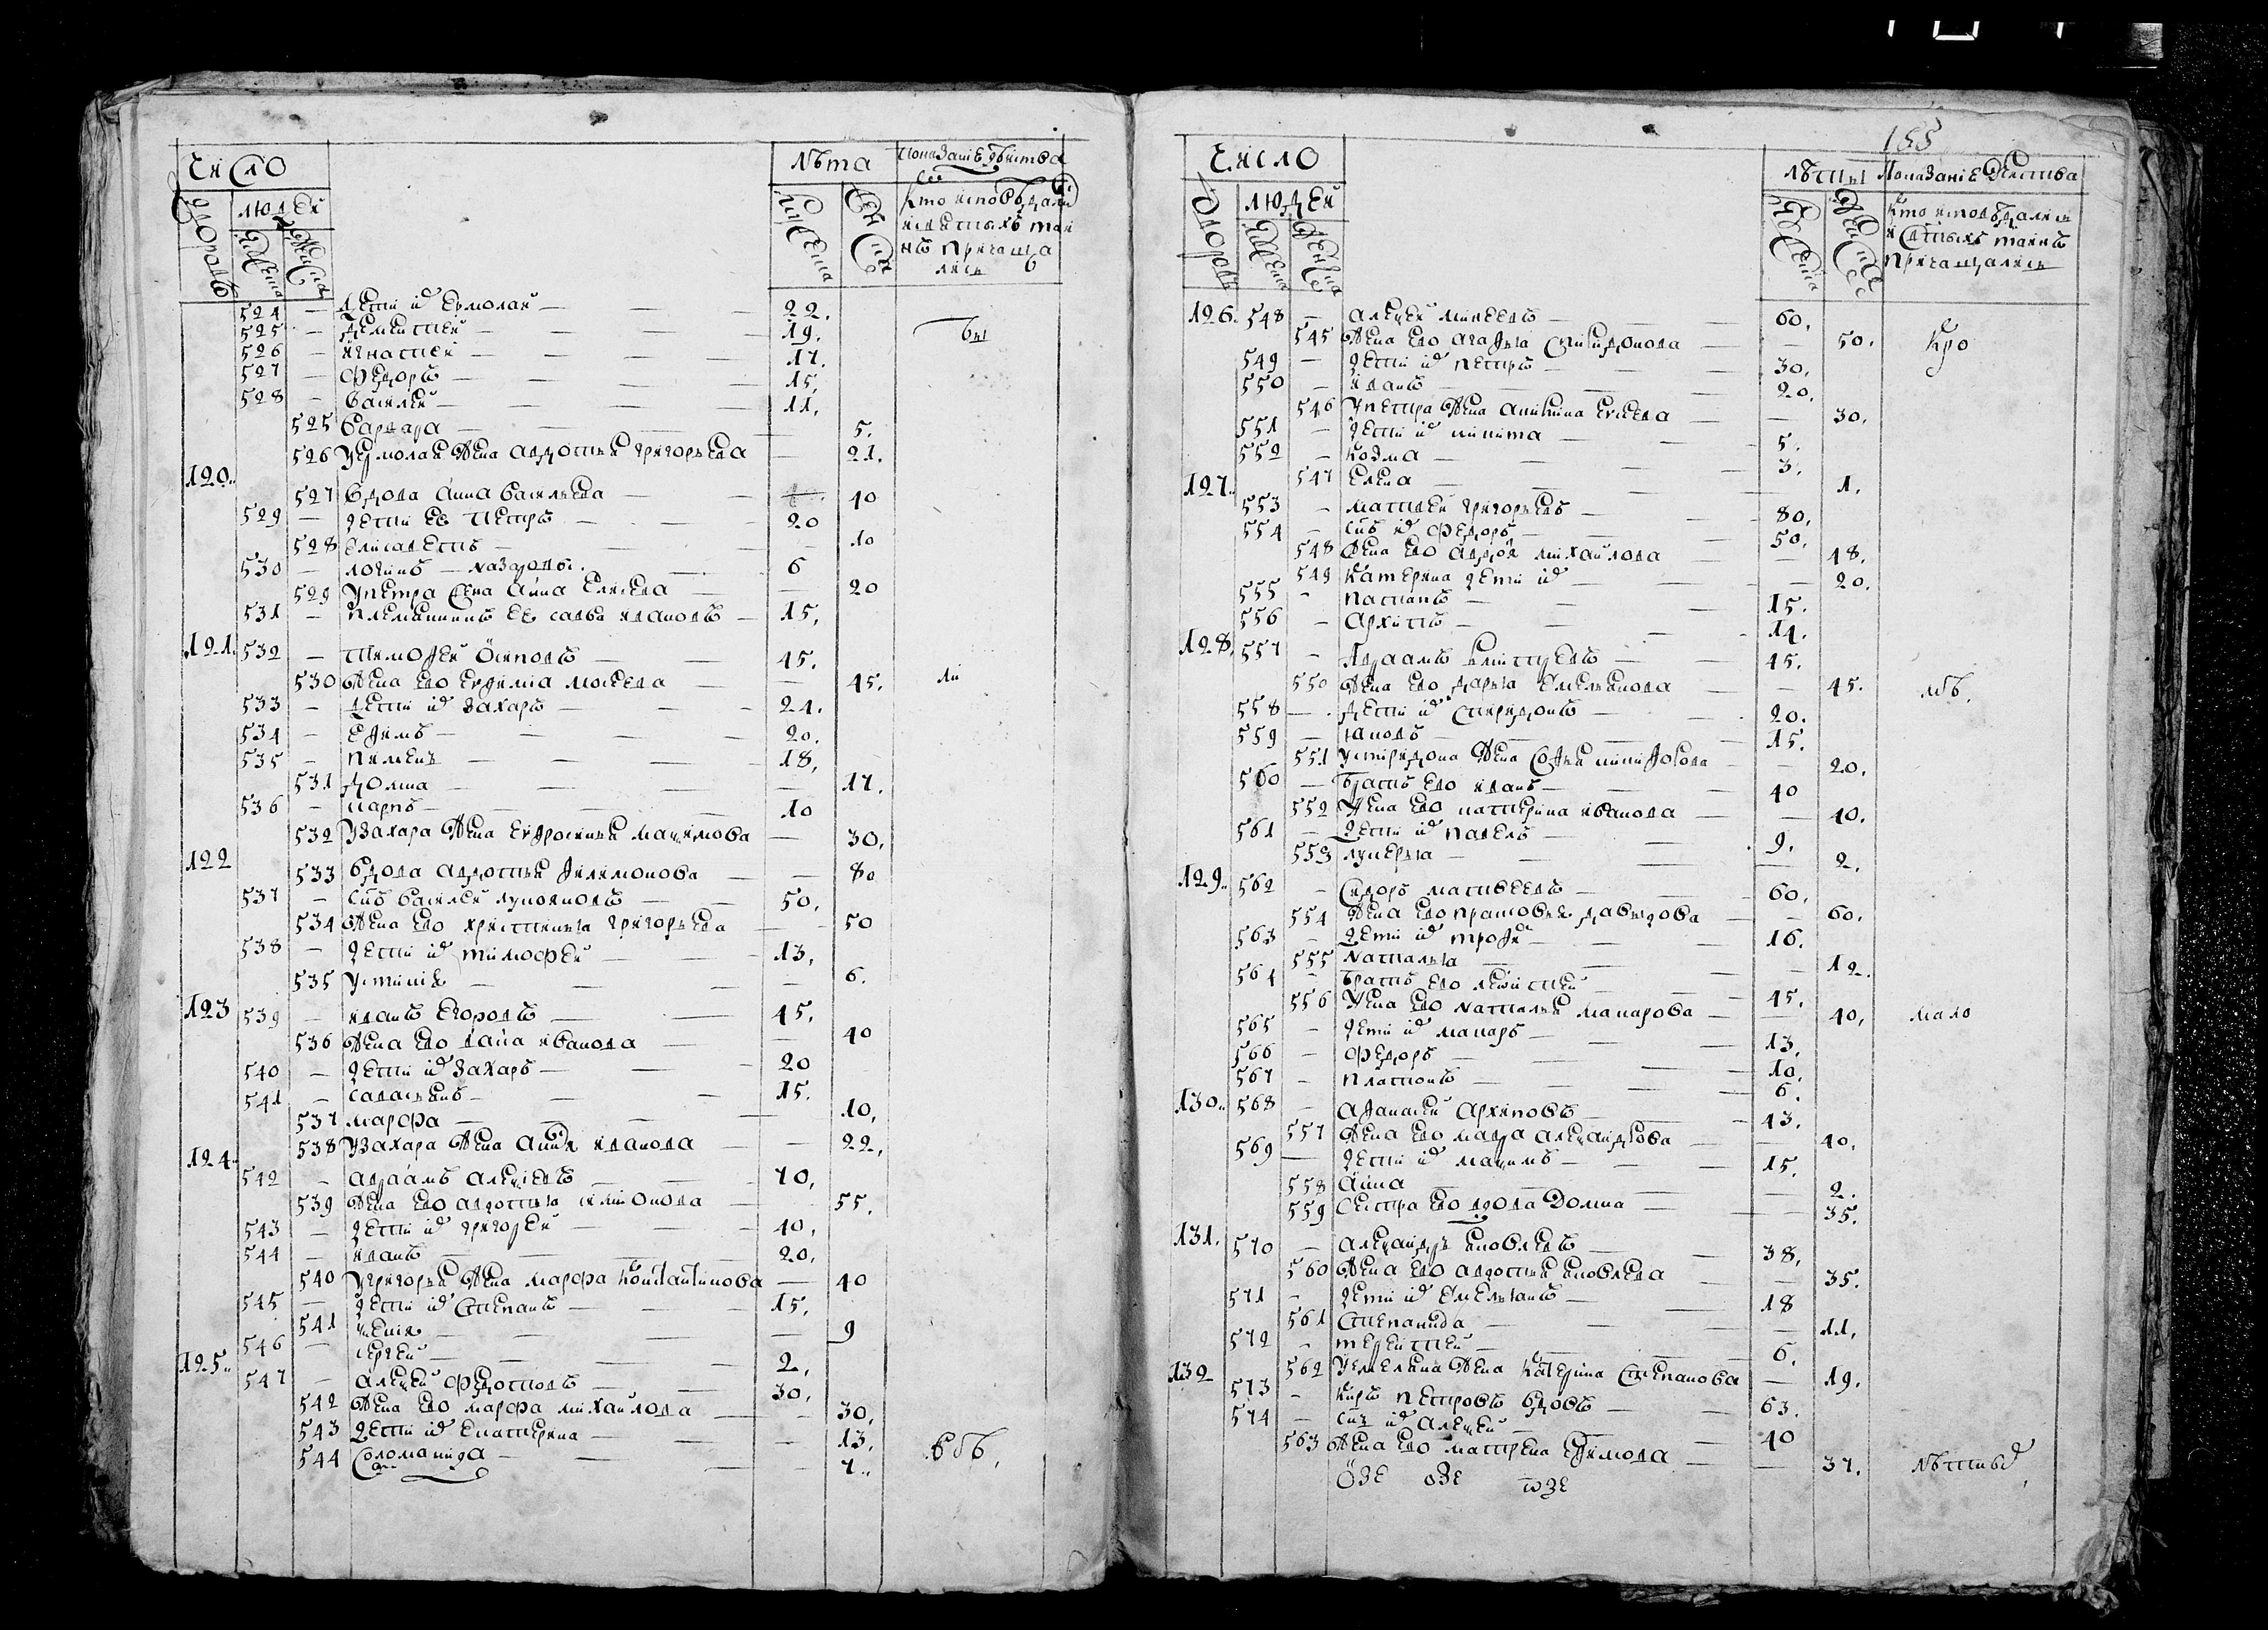 Число
лѣта
показание дѣйства
дворовъ
людей
мужеска
женска
мужеска
женска
кто исповѣдали
и святыхъ таи
нъ причаща
лись
524 — дети их Ермолай — 22.
525 — Дементей — 19.
бы
526 — Игнатей — 17.
527 — Федоръ — 15.
528 — Василей — 11.
525 Варвара — 5.
526 У Ермолая жена Авдотья Григорьева — 21.
120.
527 вдова Анна Васильева — 40
529 — дети ее Петръ — 20
528 Елисаветъ — 10
530 — Логинъ — Назаровы. — 6
529 У Петра жена Анна Елисеева — 20
531 — племянникъ ее Савва Ивановъ — 15.
121. 532 — Тимофей Осиповъ — 45.
530 жена ево Евфимия Мосеева — 45. ли
533 — дети их Захаръ — 24.
534 — Ефимъ — 20.
535 — Пименъ — 18.
531 Домна — 17.
536 — Карпъ — 10
532 У Захара жена Евфросинья Максимова — 30.
122
533 вдова Авдотья Филимонова — 80
537 — сынъ Василей Лукояновъ — 50.
534 жена ево Христинья Григорьева — 50
538 — дети их Тимофей — 13.
535 Устинія — 6.
123 539 — Иванъ Егоровъ — 45.
536 жена ево Анна Иванова — 40
540 — дети их Захаръ — 20
541 — Савастьянъ — 15.
537 Марфа — 10.
538 У Захара жена Анна Иванова — 22.
124.
542 — Авраамъ Алексіевъ — 70.
539 жена ево Авдотья — 55.
543 — дети их Григорей — 40.
544 — Иванъ — 20.
540 У Григорья жена Марфа Константинова — 40
545 — дети их Степанъ — 15.
541 Ксенія — 9
546 — Сергей — 2.
125. 547 — Алексей Федотовъ — 30.
542 жена ево Марфа Михайлова — 30.
543 дети их Екатерина — 13.
544 Соломанида — 7.
155
Число
лѣты
Показаніе дѣйства
дворовъ
людей
мужеска
женска
мужеска
женска
кто исповѣдались
и святыхъ таинъ
причащались
126. 548 — Алексей Минеевъ — 60.
545 жена ево Агафья Спиридонова — 50. кро
549 — дети их Петръ — 30.
550 — Иванъ — 20.
546 У Петра жена Акилина Евсеева — 30.
551 — дети их Никита — 5.
552 — Козма — 3.
547 Елена — 1.
127.
553 — Матвей Григорьевъ — 80.
554 — сынъ их Федоръ — 50.
548 жена ево Авдотья Михайлова — 48.
549 Катерина дети их — 20.
555 — Патапъ — 15.
556 — Архипъ — 14.
128. 557 — Авраамъ — 45.
550 жена ево Дарья Емельянова — 45. мѣ.
558 — дети их Спиридонъ — 20.
559 — Иаковъ — 15.
551 У Спиридона жена Софья Никифорова — 20.
560 — братъ ево Иванъ — 40
552 жена ево Катерина Иванова — 40.
561 — дети их Павелъ — 9.
553 Лукерья — 2.
129. 562 — Сидоръ Матвеевъ — 60.
554 жена ево Прасковья Давыдова — 60.
563 — дети их Трофим — 16.
555 Наталья — 12.
564 — братъ ево Леонтей — 45.
556 жена ево Наталья Макарова — 40. мало
565 — дети их Макаръ — 13.
566 — Федоръ — 10.
567 — Платонъ — 6.
130. 568 — Афанасей Архиповъ — 43.
557 жена ево Мавра Александрова — 40.
569 — дети их Максимъ — 15.
558 Анна — 2.
559 сестра ево вдова Домна — 35.
131. 570 — Александръ Яковлевъ — 38.
560 жена ево Авдотья Яковлева — 35.
571 — дети их Емельянъ — 18
561 Степанида — 11.
572 — Терентей — 6.
562 У Емельяна жена Катерина Степанова — 19.
132 573 — Киръ Петровъ вдовъ — 63.
574 — сынъ их Алексей — 40
563 жена ево Матрена Ефимова — 37. лѣтныхъ